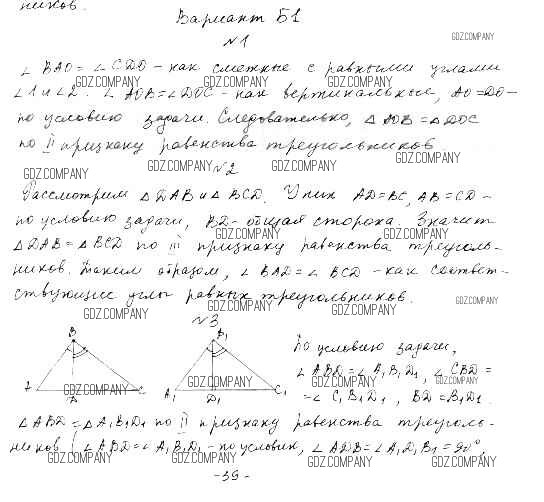 ников.
Вариант Б1
№1
∠BAO = ∠CDO - как смежные с равными углами
∠1 и ∠2. ∠AOB = ∠DOC - как вертикальные, AO = DO -
по условию задачи. Следовательно, △AOB = △DOC
по II признаку равенства треугольников
№2
Рассмотрим △DAB и △BCD. У них AD = BC, AB = CD -
по условию задачи, BD - общая сторона. Значит
△DAB = △BCD по III признаку равенства треуголь-
ников. Таким образом, ∠BAD = ∠BCD - как соответ-
ствующие углы равных треугольников.
№3
B
B₁
A
D
C
A₁
D₁
C₁
По условию задачи,
∠ABD = ∠A₁B₁D₁, ∠CBD =
= ∠C₁B₁D₁, BD = B₁D₁.
△ABD = △A₁B₁D₁ по II признаку равенства треуголь-
ников (∠ABD = ∠A₁B₁D₁ - по условию, ∠ADB = ∠A₁D₁B₁ = 90°,
- 39 -
GDZ.COMPANY